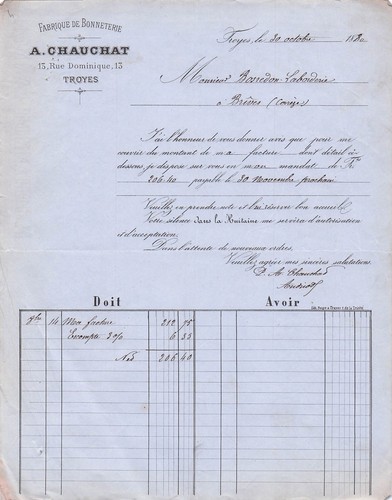 FABRIQUE DE BONNETERIE
A. CHAUCHAT
13, Rue Dominique, 13
TROYES
Troyes, le 30 octobre 188
Monsieur Borredon-Laborderie
à Brives (Corrèze)
J'ai l'honneur de vous donner avis que pour me
couvrir du montant de ma facture dont détail ci-
dessous, je dispose sur vous en mon mandat de Frs
206.40 payable le 30 Novembre prochain
Veuillez en prendre note et lui réserver bon accueil.
Votre silence dans la Huitaine me servira d'autorisation
et d'acceptation.
Dans l'attente de nouveaux ordres,
Veuillez agréer mes sincères salutations.
P. A. Chauchat
Doit Avoir
14 Mon facture 212 75
Escompte 3% 6 35
Net 206 40